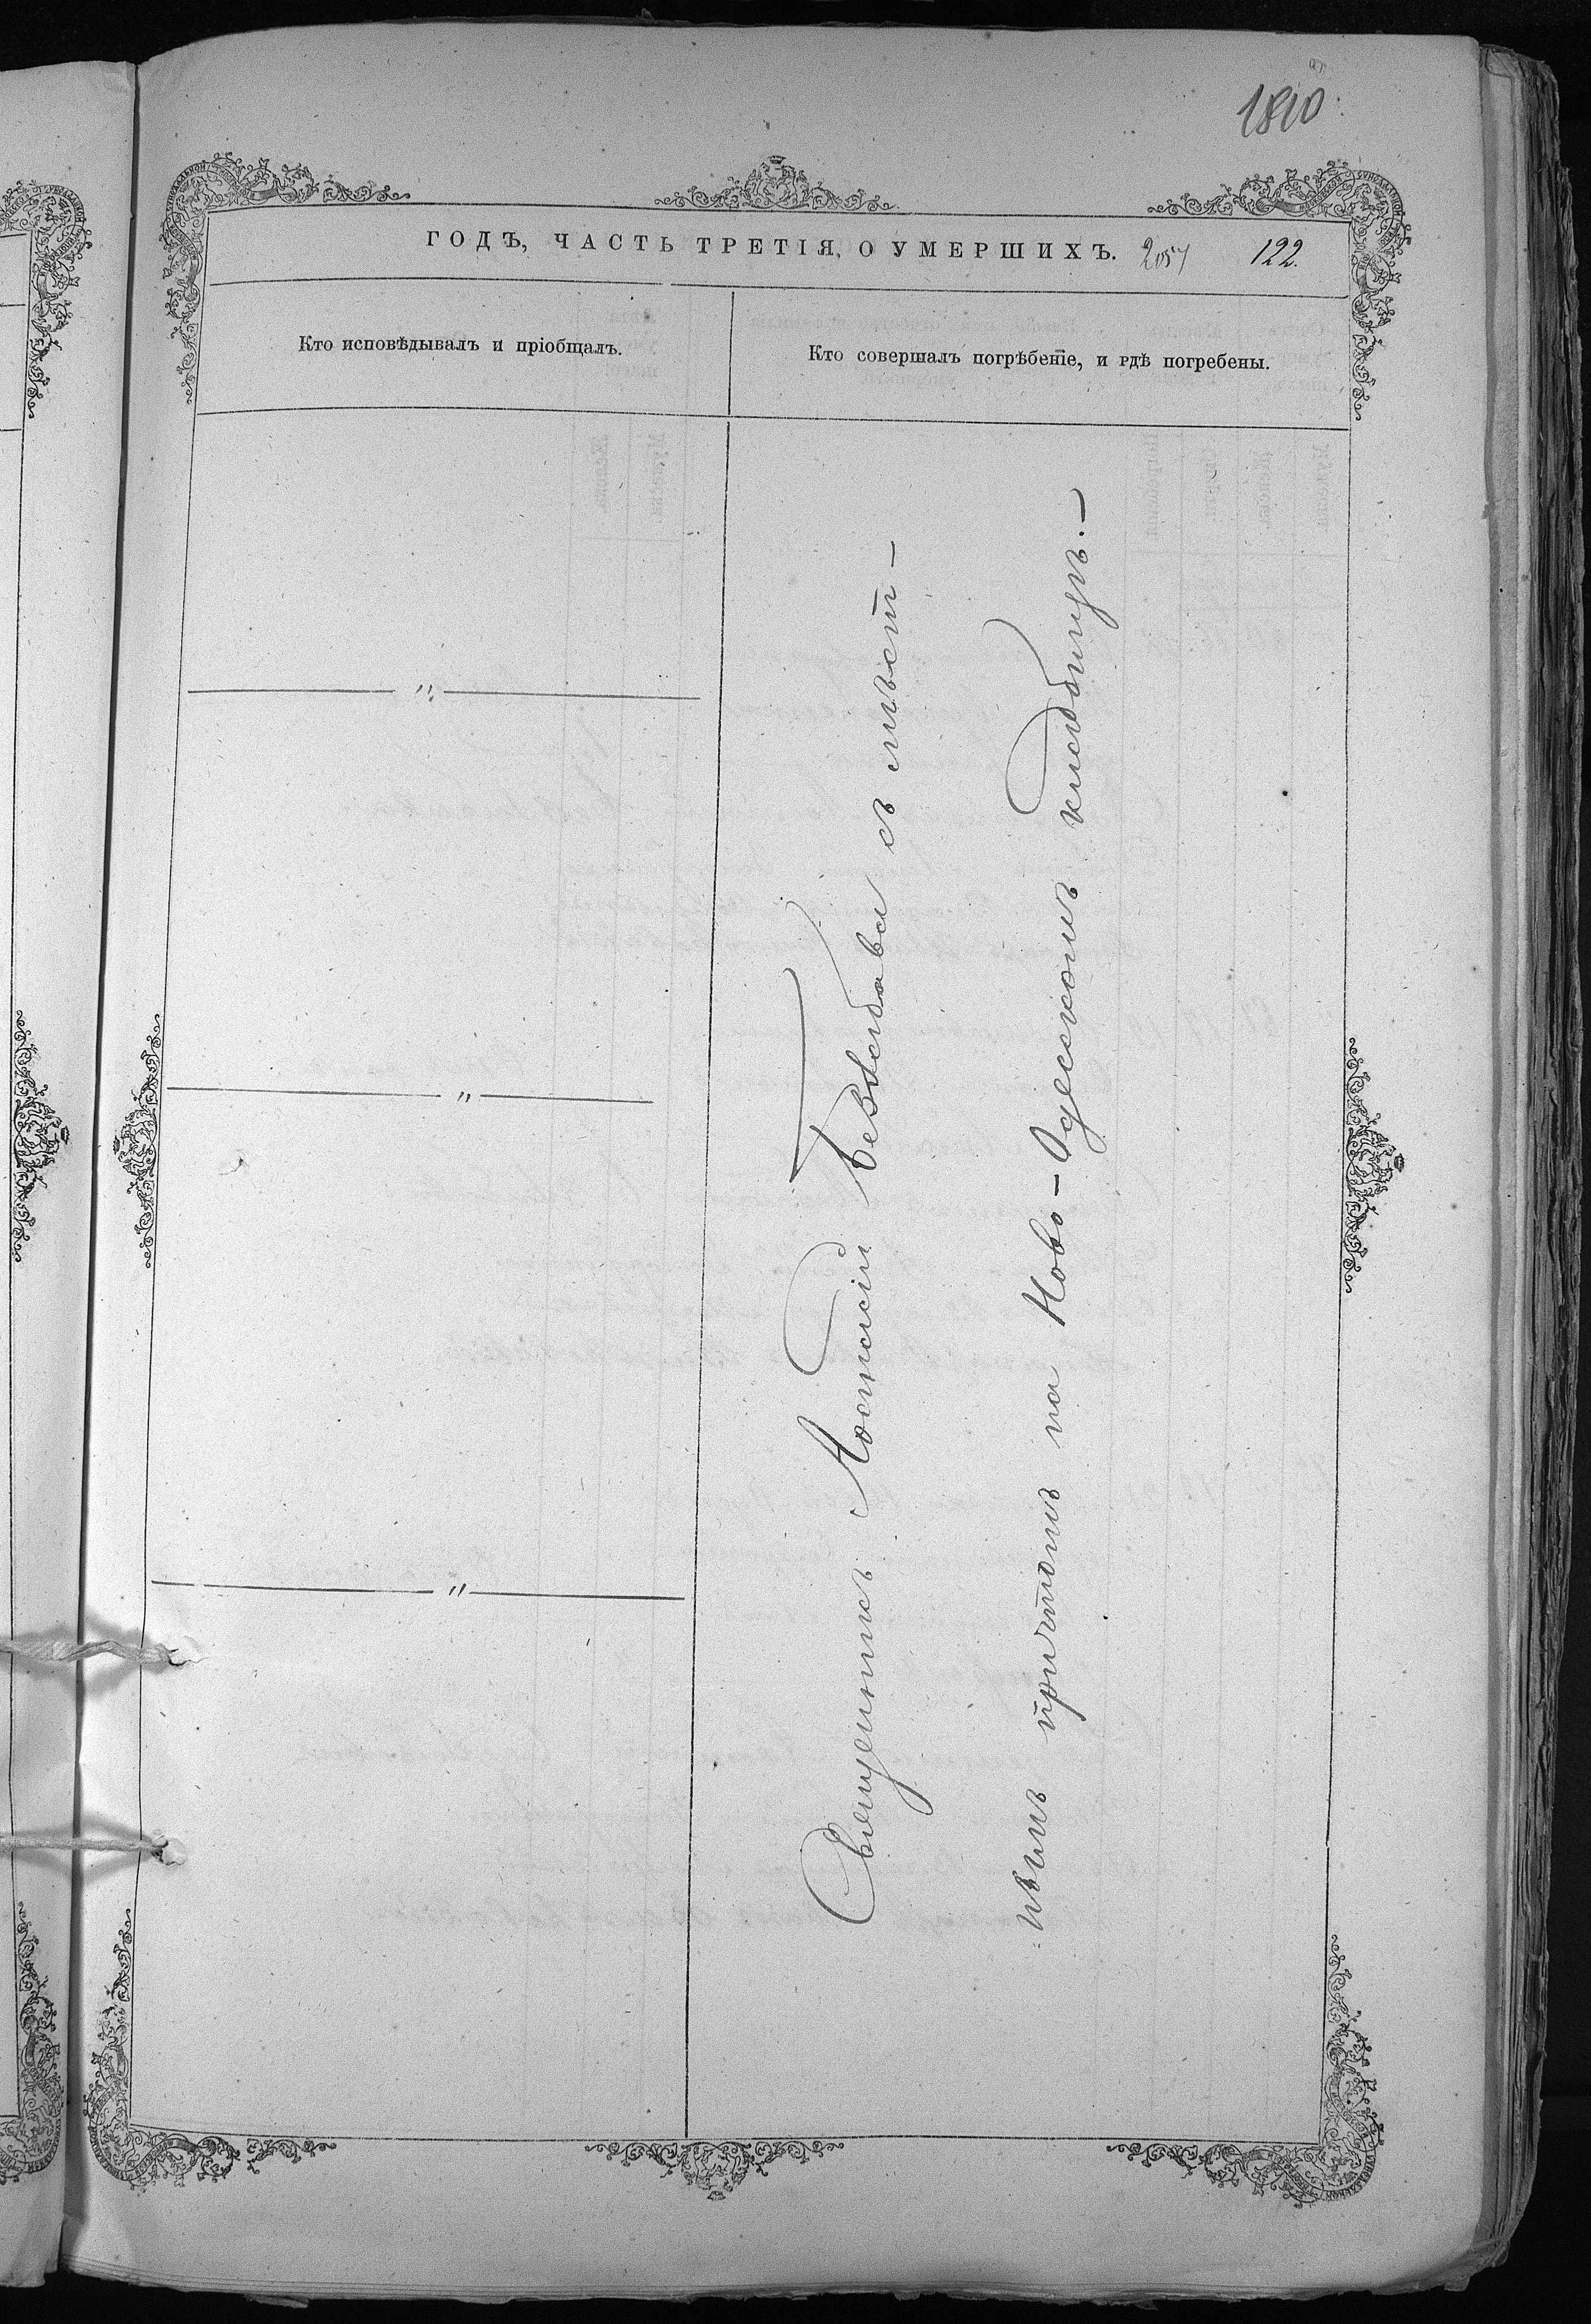 1810
ГОДЪ, ЧАСТЬ ТРЕТІЯ, О УМЕРШИХЪ. 2057 122.
Кто исповѣдывалъ и пріобщалъ.
Кто совершалъ погрѣбеніе, и гдѣ погребены.
„
„
„
Священникъ Антоній Безсбава съ мѣст-
нымъ притомъ на Ново-Одескомъ кладбищѣ.-